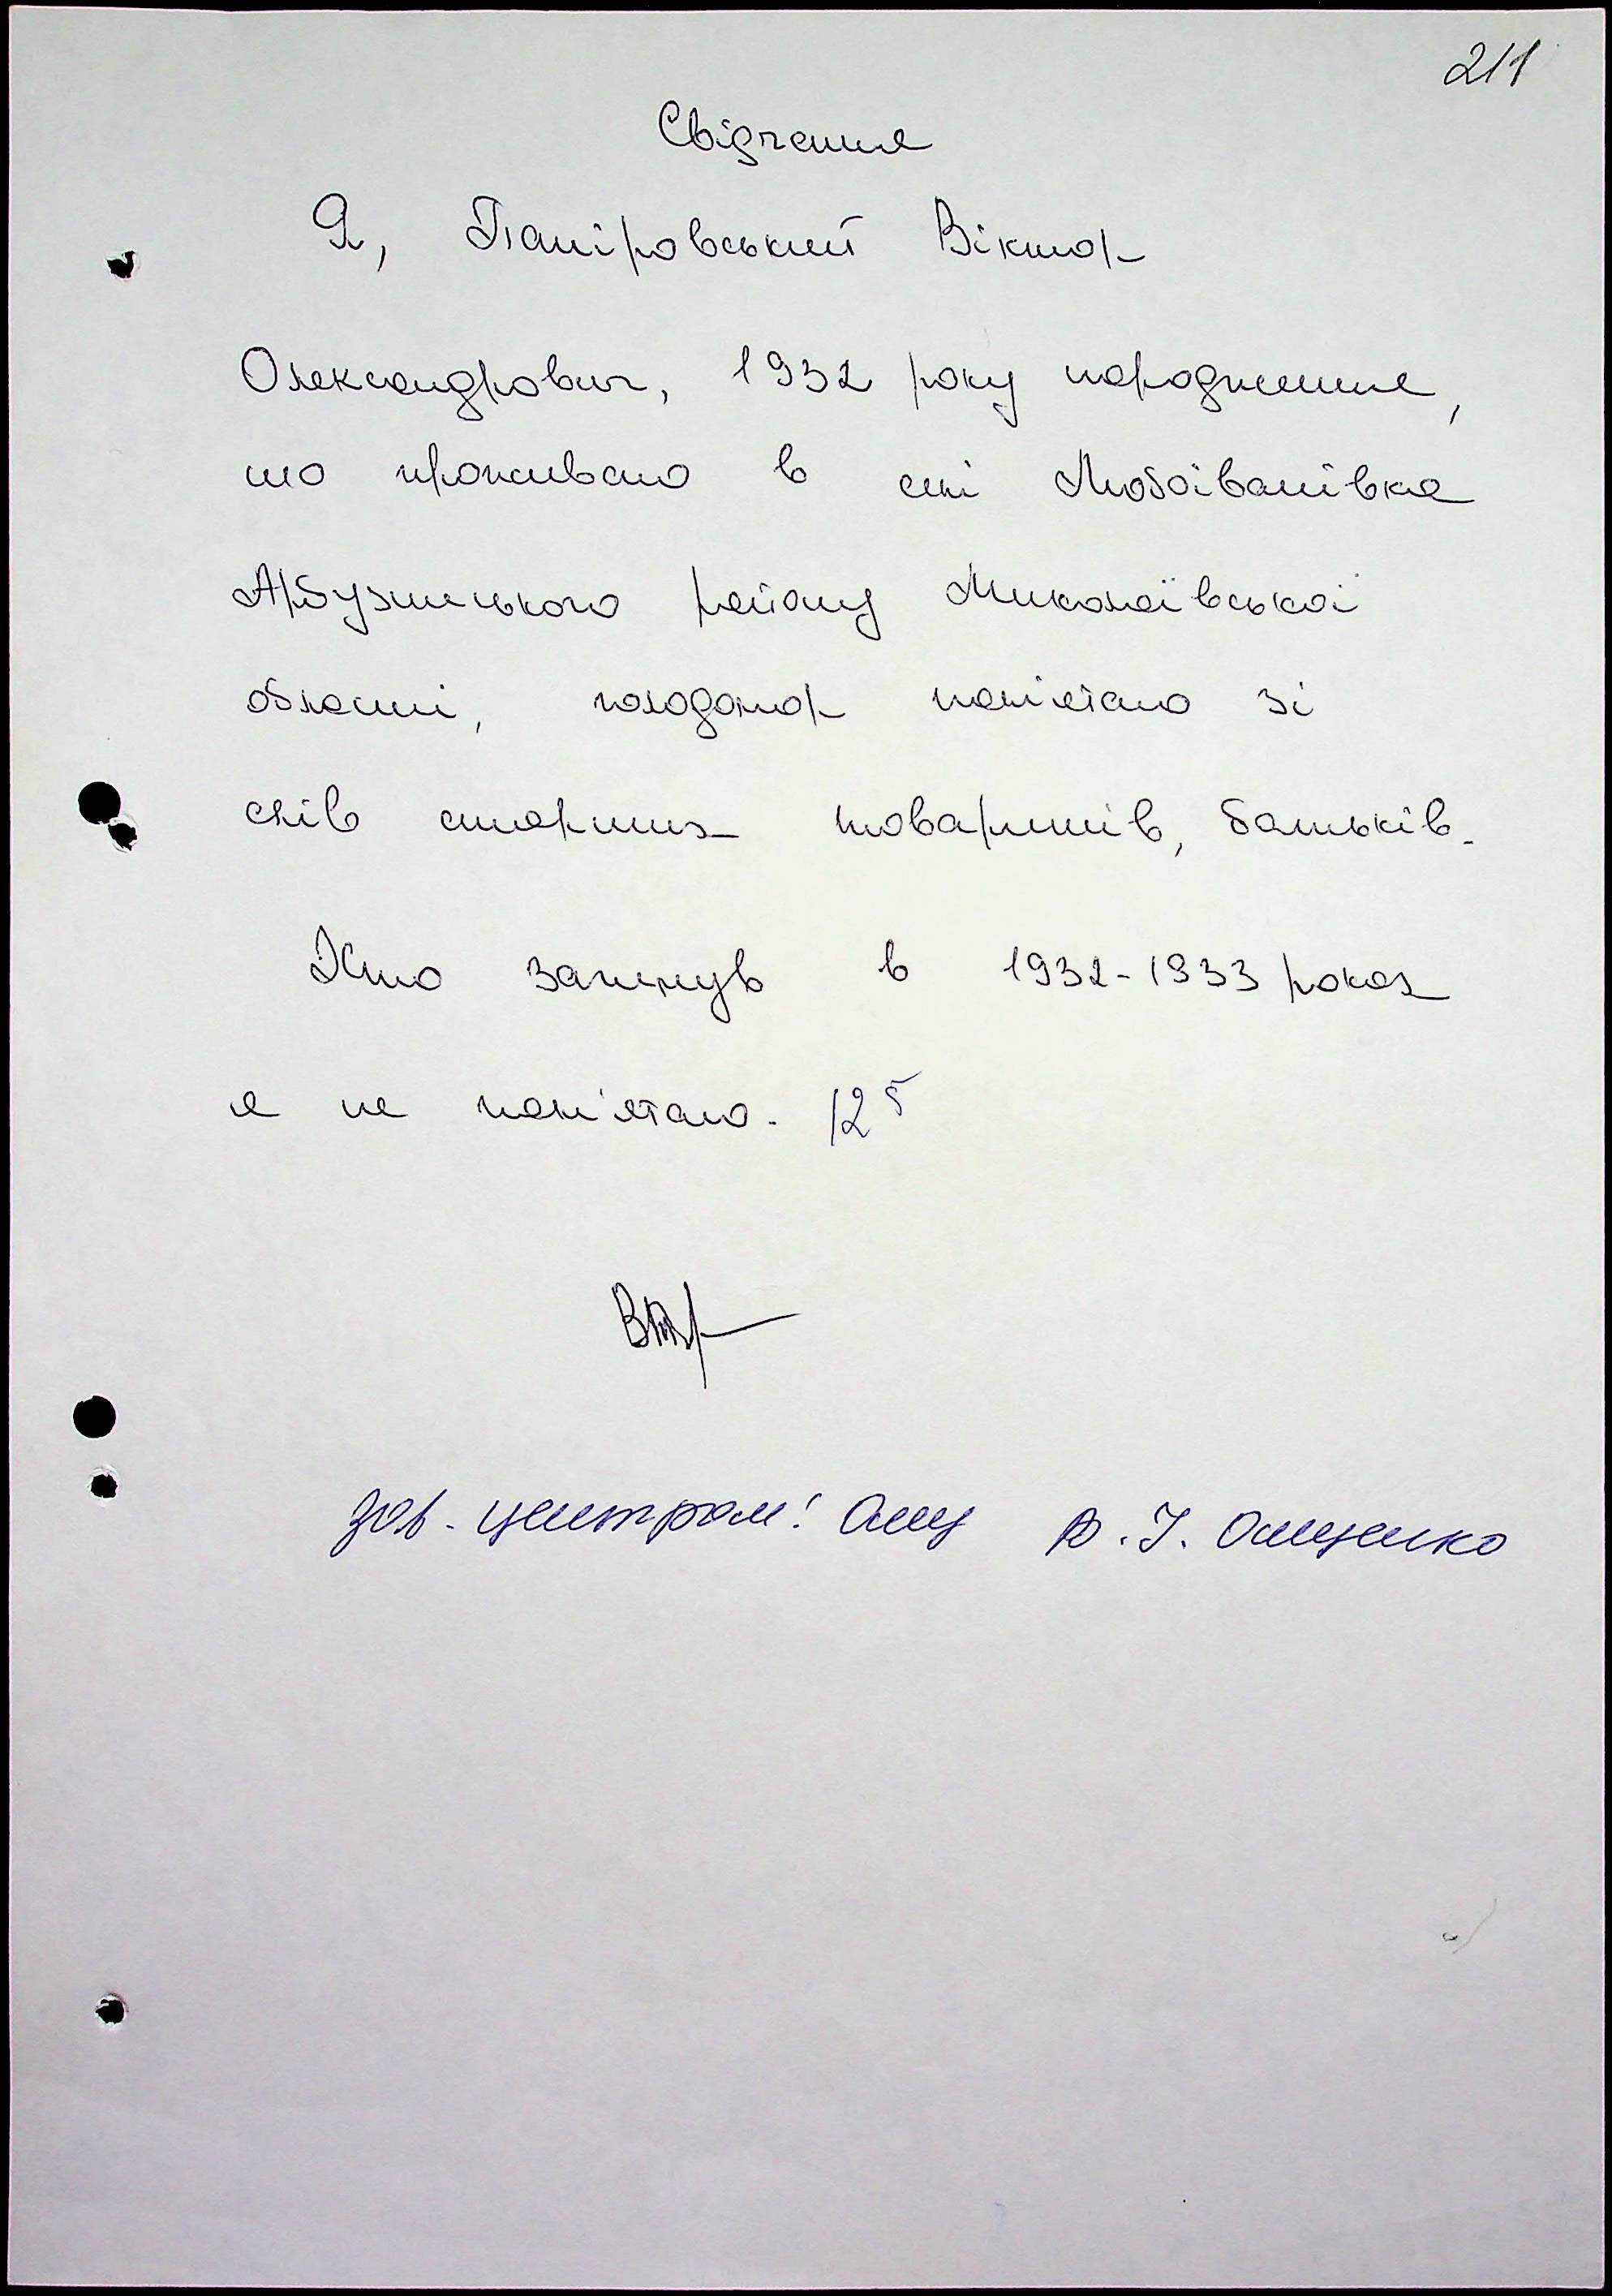 211
Свідчення
Я, Папіровський Віктор
Олександрович, 1932 року народження,
що проживаю в селі Любоіванівка
Арбузинського району Миколаївської
області, голодомор пам'ятаю зі
слів старших товаришів, батьків.
Хто загинув в 1932-1933 роках
я не пам'ятаю.
Зав. центром: В.І. Онищенко